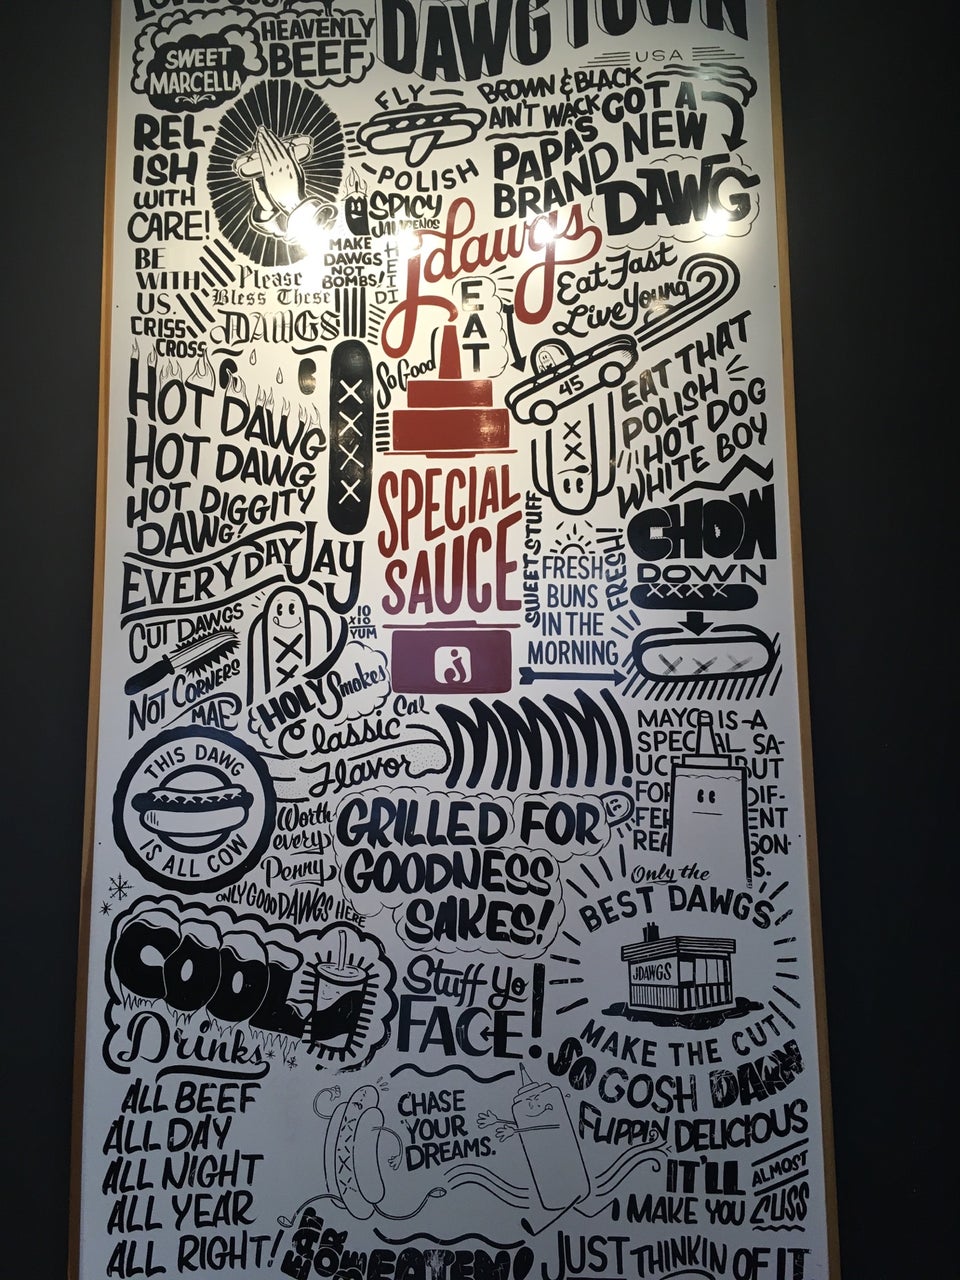 DAWG TOWN
USA
HEAVENLY
BEEF
SWEET
MARCELLA
FLY
POLISH
BROWN & BLACK
AIN'T WACK
PAPA'S
GOT A
BRAND NEW
DAWG
REL-
ISH
WITH
CARE!
SPICY
JALAPENOS
MAKE
DAWGS
NOT
BOMBS!
HEIDI
jdawgs
BE
WITH
US.
CRISS
CROSS
Please
Bless These
DAWGS
EAT
So Good
Eat Fast
Live Young
45
EAT THAT
POLISH
HOT DOG
WHITE BOY
HOT DAWG
HOT DAWG
HOT DIGGITY
DAWG!
SPECIAL
SAUCE
J
SWEET STUFF
FRESH
BUNS
IN THE
MORNING
FRESH!
CHOW
DOWN
EVERYDAY JAY
CUT DAWGS
NOT CORNERS
MAP
10
X10
YUM
HOLY Smokes
Cal
Classic
Flavor
MMMM!
MAYO IS A
SPECIAL SA-
UCE BUT
FOR DIF-
FERENT
REASON-
S.
THIS DAWG
IS ALL COW
Worth
every
Penny
ONLY GOOD DAWGS HERE
GRILLED FOR
GOODNESS
SAKES!
Only the
BEST DAWGS
JDAWGS
MAKE THE CUT!
COOL
Drinks
Stuff Yo
FACE!
SO GOSH DAWN
FLIPPIN DELICIOUS
IT'LL
ALMOST
MAKE YOU CUSS
ALL BEEF
ALL DAY
ALL NIGHT
ALL YEAR
ALL RIGHT!
CHASE
YOUR
DREAMS.
EATEN!
JUST THINKIN OF IT